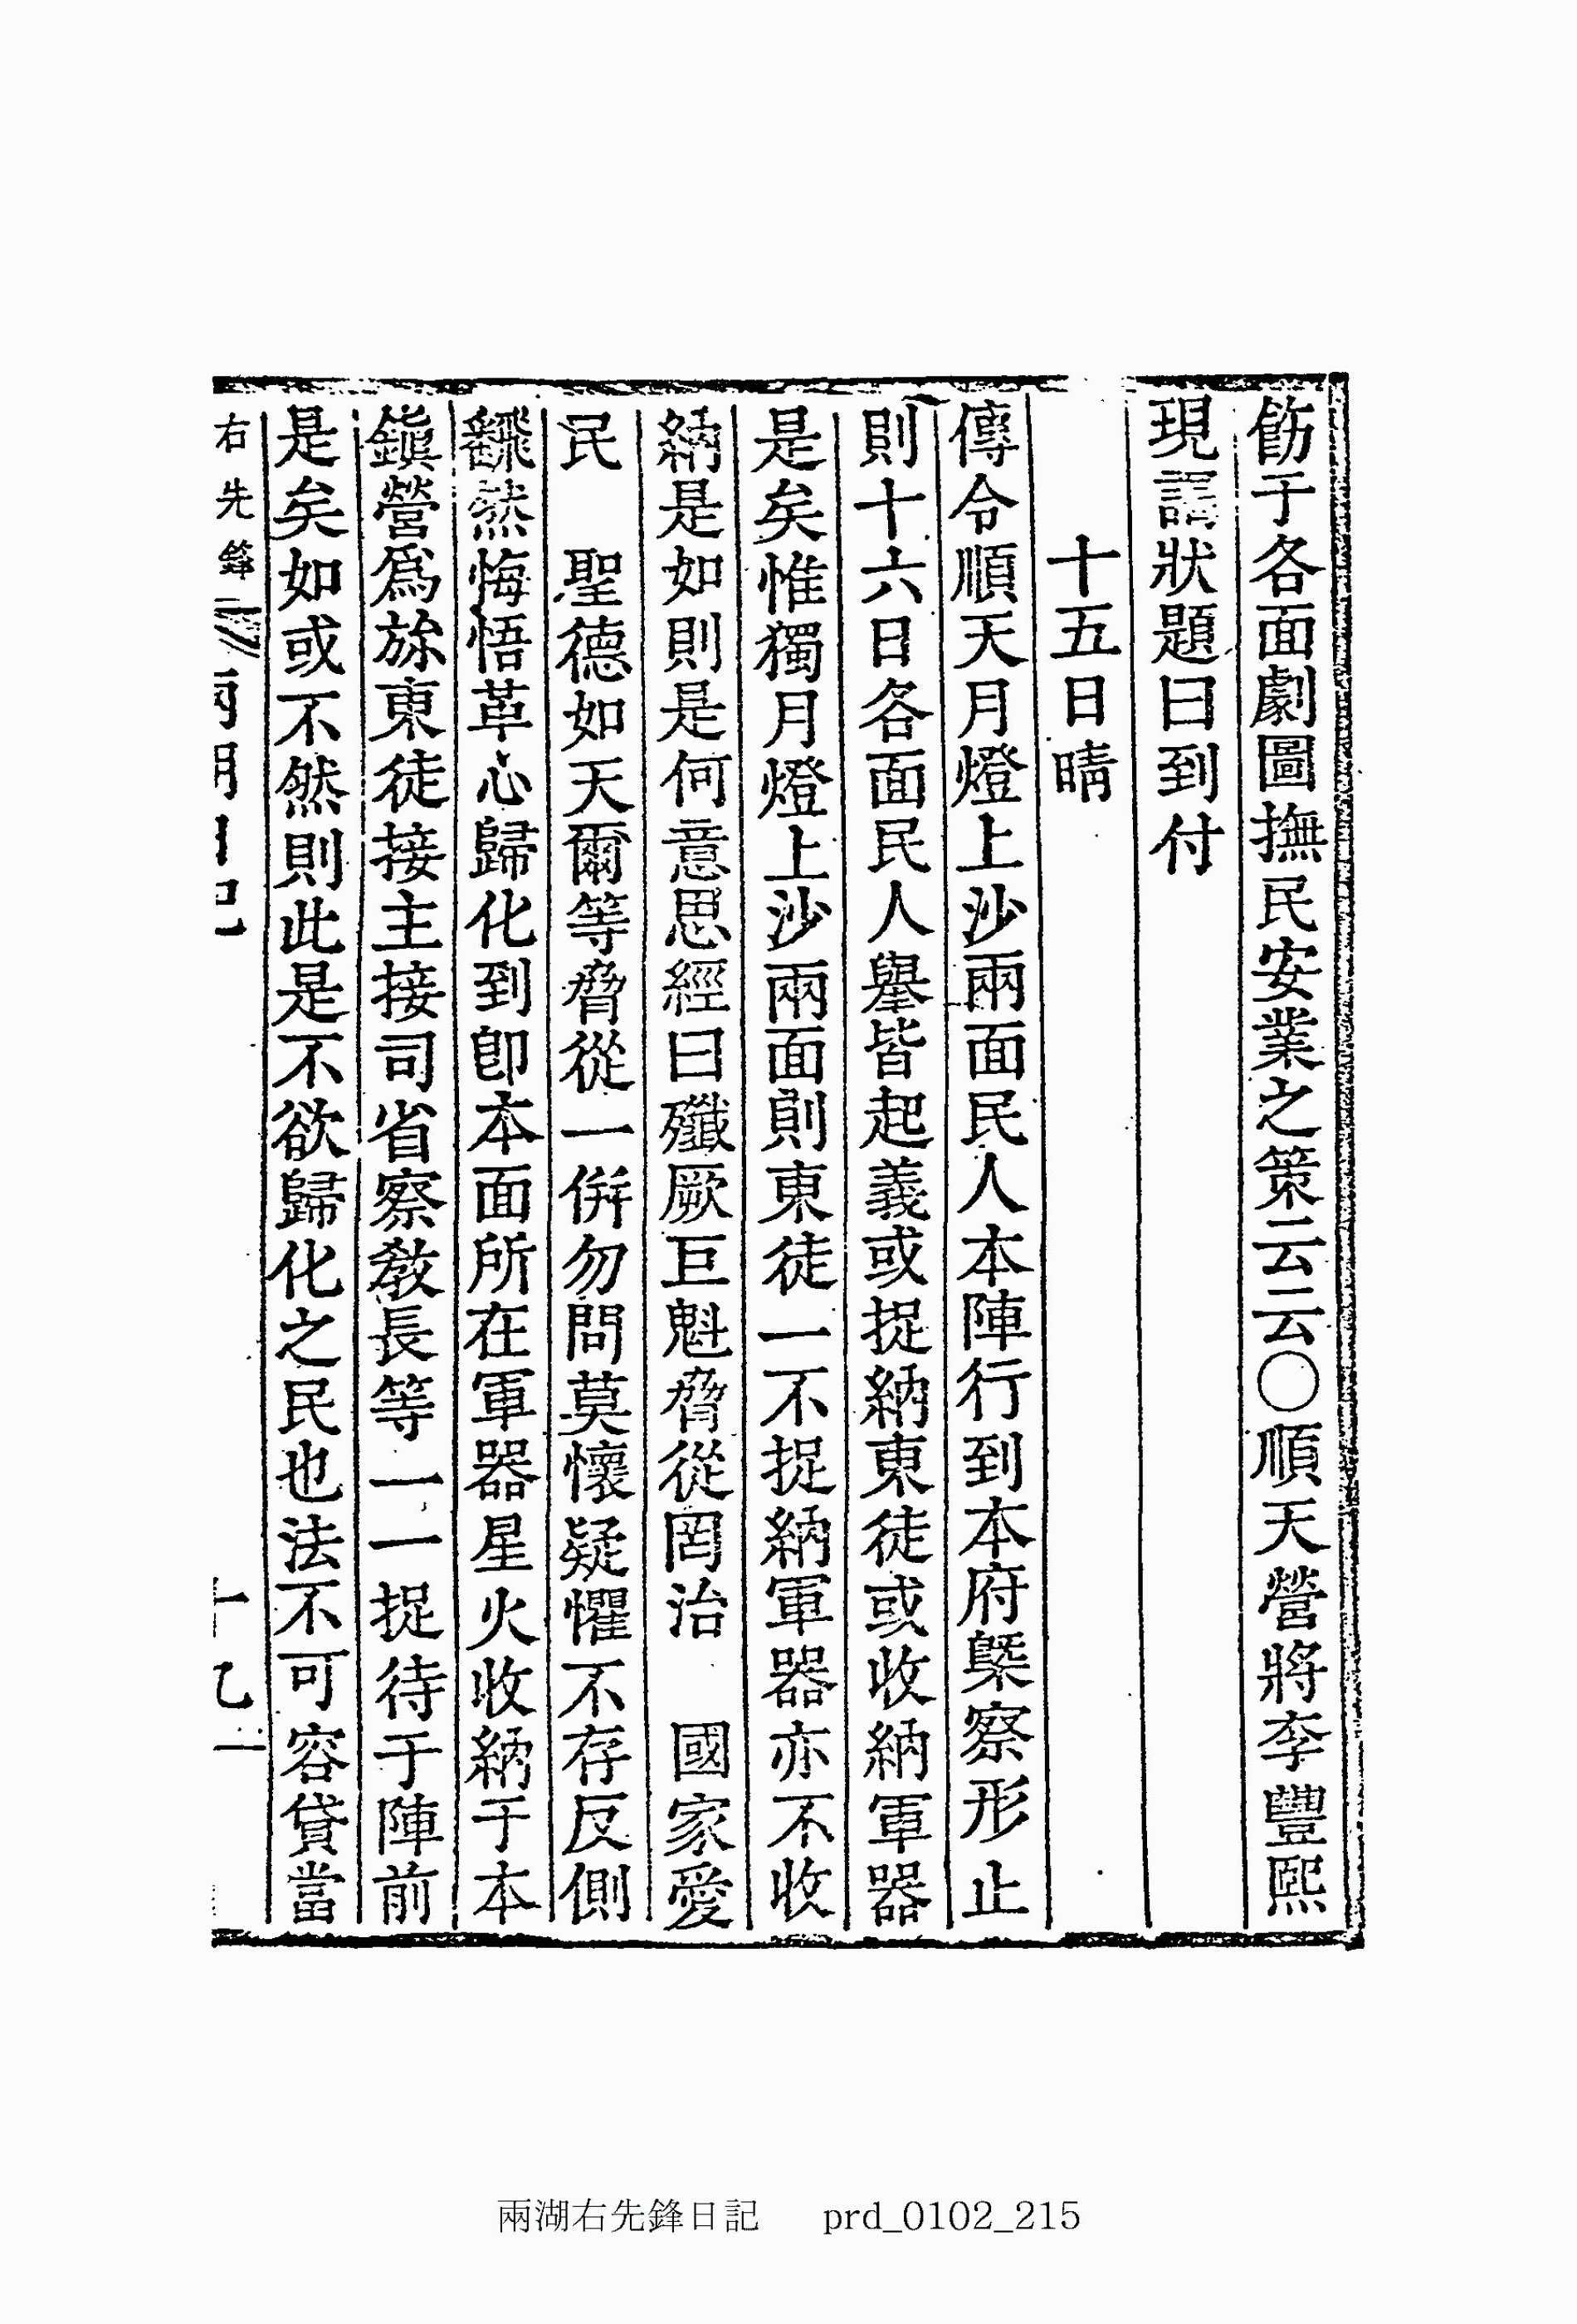 飭于各面劇圖撫民安業之策云云〇順天營將李豐熙
現謁狀題曰到付
十五日晴
傳令順天月燈上沙兩面民人本陣行到本府槩察形止
則十六日各面民人擧皆起義或捉納東徒或收納軍器
是矣惟獨月燈上沙兩面則東徒一不捉納軍器亦不收
納是如則是何意思經曰殲厥巨魁脅從罔治 國家愛
民 聖德如天爾等脅從一倂勿問莫懷疑懼不存反側
飜然悔悟革心歸化到卽本面所在軍器星火收納于本
鎭營爲旀東徒接主接司省察敎長等一一捉待于陣前
是矣如或不然則此是不欲歸化之民也法不可容貸當
右先鋒
兩湖右先鋒日記 prd_0102_215